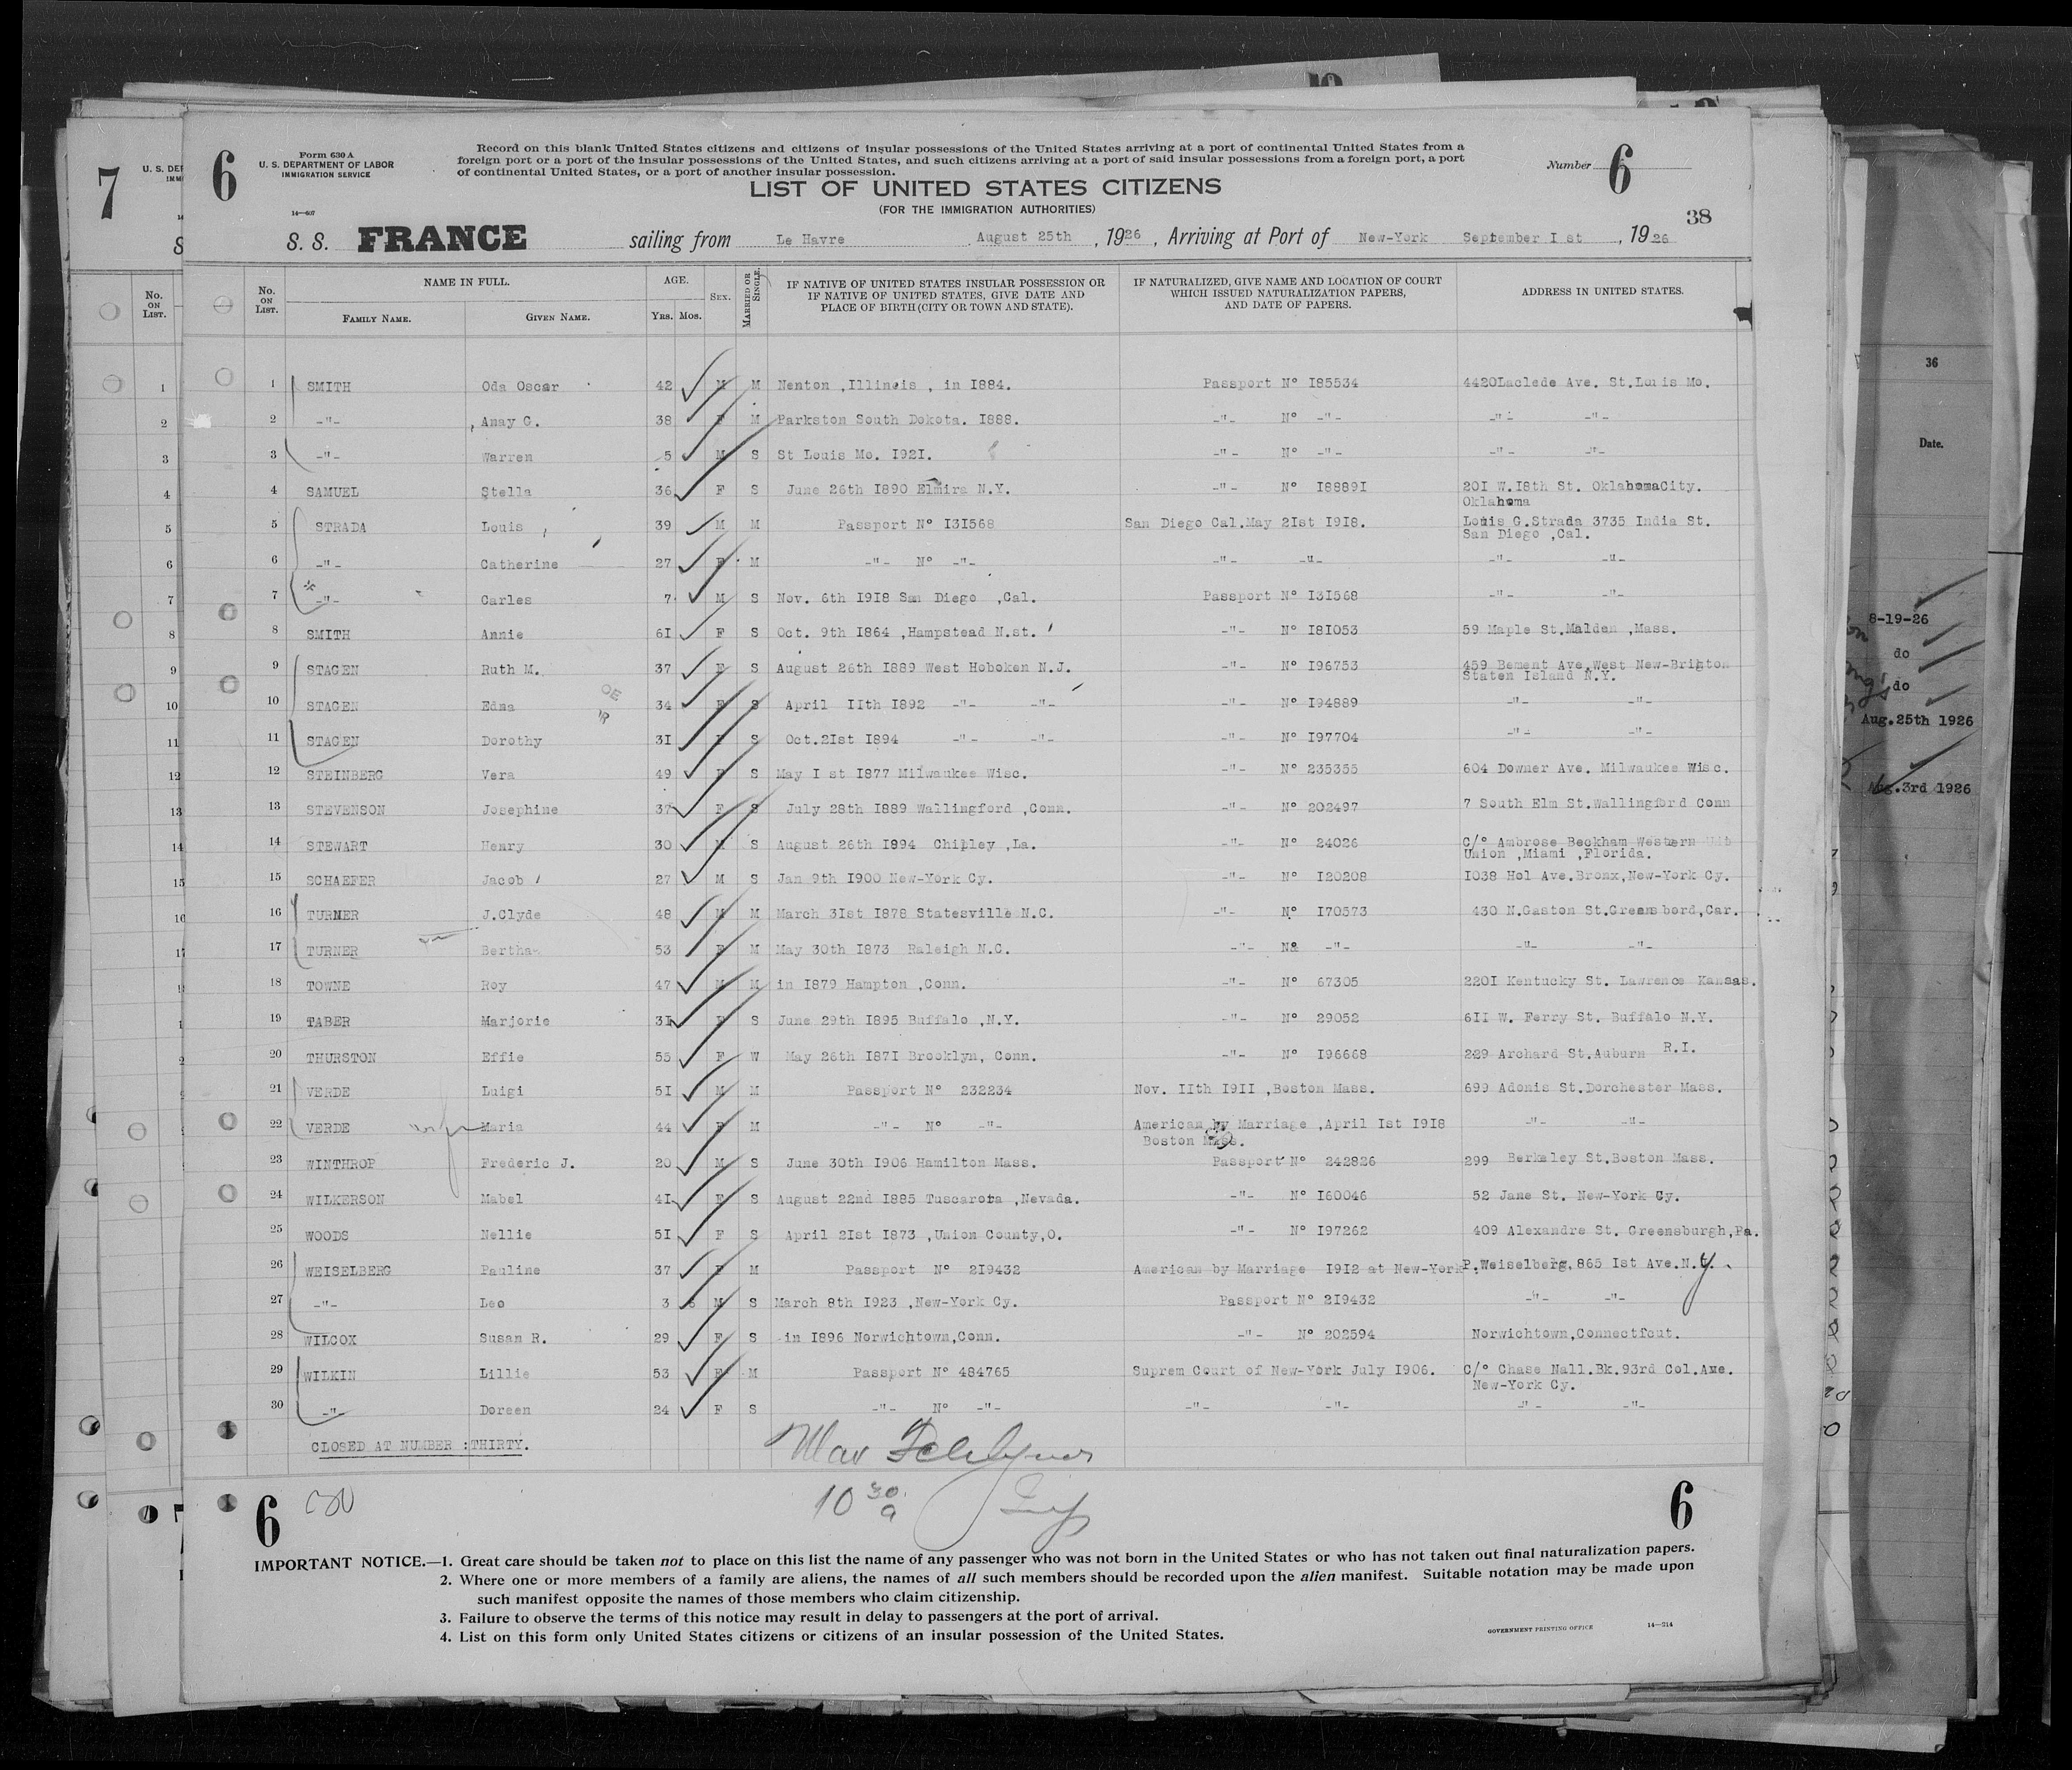 6
Form 630 A
U. S. DEPARTMENT OF LABOR
IMMIGRATION SERVICE
14—607
Record on this blank United States citizens and citizens of insular possessions of the United States arriving at a port of continental United States from a
foreign port or a port of the insular possessions of the United States, and such citizens arriving at a port of said insular possessions from a foreign port, a port
of continental United States, or a port of another insular possession.
LIST OF UNITED STATES CITIZENS
(FOR THE IMMIGRATION AUTHORITIES)
Number 6
38
S. S. FRANCE sailing from Le Havre August 25th , 1926 , Arriving at Port of New-York September I st , 1926
No. ON LIST. NAME IN FULL. FAMILY NAME. GIVEN NAME. AGE. YRS. MOS. SEX. MARRIED OR SINGLE. IF NATIVE OF UNITED STATES INSULAR POSSESSION OR IF NATIVE OF UNITED STATES, GIVE DATE AND PLACE OF BIRTH (CITY OR TOWN AND STATE). IF NATURALIZED, GIVE NAME AND LOCATION OF COURT WHICH ISSUED NATURALIZATION PAPERS, AND DATE OF PAPERS. ADDRESS IN UNITED STATES.
1 SMITH Oda Oscar 42 M M Nenton ,Illinois , in I884. Passport N° I85534 4420Laclede Ave. St.Louis Mo.
2 -"- Amay C. 38 F M Parkston South Dokota. I888. -"- N° -"- -"- -"-
3 -"- Warren 5 M S St Louis Mo. I92I. -"- N° -"- -"- -"-
4 SAMUEL Stella 36 F S June 26th I890 Elmira N.Y. -"- N° I8889I 20I W.I8th St. OklahomaCity.
Oklahoma
5 STRADA Louis 39 M M Passport N° I3I568 San Diego Cal.May 2Ist I9I8. Louis G.Strada 3735 India St.
San Diego ,Cal.
6 -"- Catherine 27 F M -"- N° -"- -"- -"- -"- -"-
7 -"- Carles 7 M S Nov. 6th I9I8 San Diego ,Cal. Passport N° I3I568 -"- -"-
8 SMITH Annie 6I F S Oct. 9th I864 ,Hampstead N.st. -"- N° I8I053 59 Maple St.Malden ,Mass.
9 STAGEN Ruth M. 37 F S August 26th I889 West Hoboken N.J. -"- N° I96753 459 Bement Ave.West New-Brighton
Staten Island N.Y.
10 STAGEN Edna 34 F S April IIth I892 -"- -"- -"- N° I94889 -"- -"-
11 STAGEN Dorothy 3I F S Oct.2Ist I894 -"- -"- -"- N° I97704 -"- -"-
12 STEINBERG Vera 49 F S May I st I877 Milwaukee Wisc. -"- N° 235355 604 Downer Ave. Milwaukee Wisc.
13 STEVENSON Josephine 37 F S July 28th I889 Wallingford ,Conn. -"- N° 202497 7 South Elm St.Wallingford Conn
14 STEWART Henry 30 M S August 26th I894 Chipley ,La. -"- N° 24026 C/° Ambrose Beckham Western
Union ,Miami ,Florida.
15 SCHAEFER Jacob 27 M S Jan 9th I900 New-York Cy. -"- N° I20208 I038 Hol Ave.Bronx,New-York Cy.
16 TURNER J.Clyde 48 M M March 3Ist I878 Statesville N.C. -"- N° I70573 430 N.Gaston St.Greensbord,Car.
17 TURNER Bertha 53 F M May 30th I873 Raleigh N.C. -"- N° -"- -"- -"-
18 TOWNE Roy 47 M M in I879 Hampton ,Conn. -"- N° 67305 220I Kentucky St. Lawrence Kansas.
19 TABER Marjorie 3I F S June 29th I895 Buffalo ,N.Y. -"- N° 29052 6II W. Ferry St. Buffalo N.Y.
20 THURSTON Effie 55 F W May 26th I87I Brooklyn, Conn. -"- N° I96668 229 Archard St.Auburn R.I.
21 VERDE Luigi 5I M M Passport N° 232234 Nov. IIth I9II ,Boston Mass. 699 Adonis St.Dorchester Mass.
22 VERDE Maria 44 F M -"- N° -"- American by Marriage ,April Ist I9I8 -"- -"-
Boston Mass.
23 WINTHROP Frederic J. 20 M S June 30th I906 Hamilton Mass. Passport N° 242826 299 Berkeley St.Boston Mass.
24 WILKERSON Mabel 4I F S August 22nd I885 Tuscarora ,Nevada. -"- N° I60046 52 Jane St. New-York Cy.
25 WOODS Nellie 5I F S April 2Ist I873 ,Union County,O. -"- N° I97262 409 Alexandre St. Greensburgh,Pa.
26 WEISELBERG Pauline 37 F M Passport N° 2I9432 American by Marriage I9I2 at New-York. P.Weiselberg,865 Ist Ave.N.Y.
27 -"- Leo 3 6 M S March 8th I923 ,New-York Cy. Passport N° 2I9432 -"- -"-
28 WILCOX Susan R. 29 F S in I896 Norwichtown,Conn. -"- N° 202594 Norwichtown,Connectfcut.
29 WILKIN Lillie 53 F M Passport N° 484765 Suprem Court of New-York July I906. C/° Chase Nall.Bk.93rd Col.Ave.
New-York Cy.
30 -"- Doreen 24 F S -"- N° -"- -"- -"- -"- -"-
CLOSED AT NUMBER :THIRTY.
10 30 a
6
6
IMPORTANT NOTICE.—1. Great care should be taken not to place on this list the name of any passenger who was not born in the United States or who has not taken out final naturalization papers.
2. Where one or more members of a family are aliens, the names of all such members should be recorded upon the alien manifest. Suitable notation may be made upon
such manifest opposite the names of those members who claim citizenship.
3. Failure to observe the terms of this notice may result in delay to passengers at the port of arrival.
4. List on this form only United States citizens or citizens of an insular possession of the United States.
GOVERNMENT PRINTING OFFICE
14—214
7
U. S. DEP
IMMI
No. ON LIST.
1
2
3
4
5
6
7
8
9
10
11
12
13
14
15
36
Date.
8-19-26
do
do
Aug.25th 1926
Aug.3rd 1926